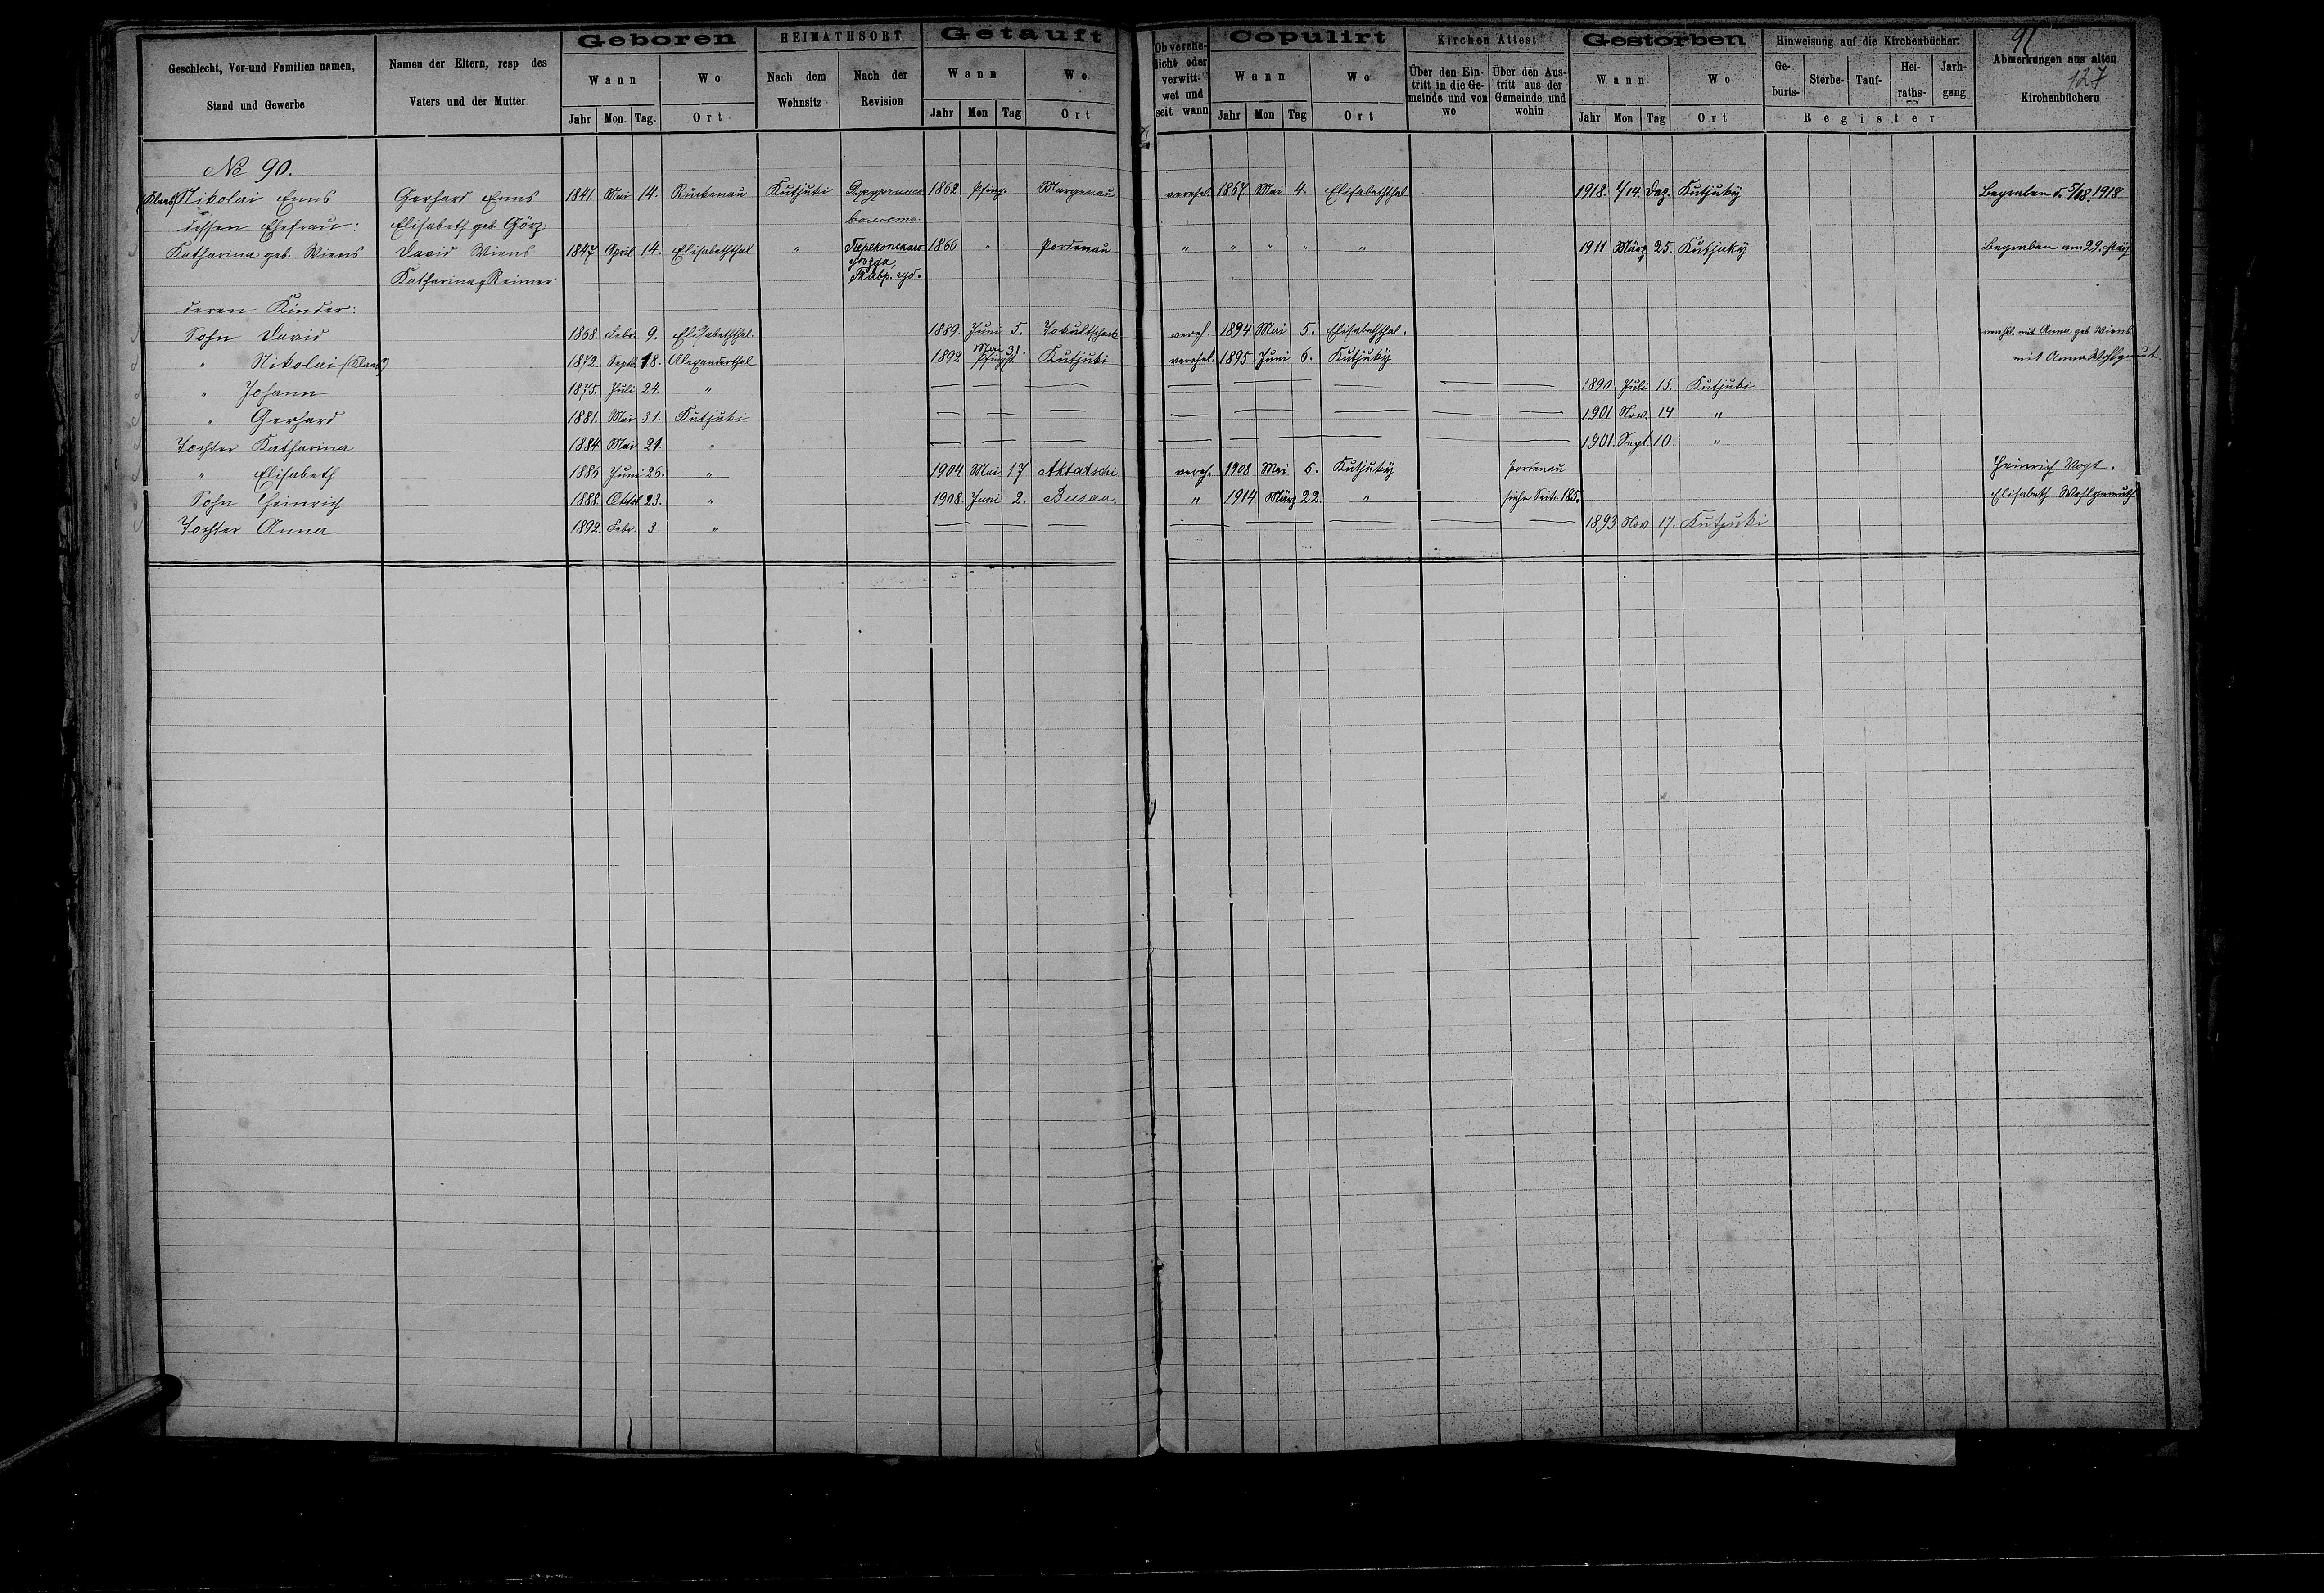 Geschlecht, Vor-und Familien namen,
Stand und Gewerbe
Namen der Eltern, resp des
Vaters und der Mutter.
Geboren
Wann
Wo
Jahr Mon. Tag. Ort
HEIMATHSORT
Nach dem Wohnsitz
Nach der Revision
Getauft
Wann
Wo
Jahr Mon Tag Ort
Ob verehe-
licht oder
verwitt-
wet und
seit wann
Copulirt
Wann
Wo
Jahr Mon Tag Ort
Kirchen Attest
Über den Ein-
tritt in die Ge-
meinde und von
wo
Über den Aus-
tritt aus der
Gemeinde und
wohin
Gestorben
Wann
Wo
Jahr Mon Tag Ort
Hinweisung auf die Kirchenbücher:
Ge-
burts-
Sterbe-
Tauf-
Hei-
raths-
Jarh-
gang
Register
91
Abmerkungen aus alten
127
Kirchenbüchern
No 90.
(Klaas) Nikolai Enns Gerhard Enns 1841. Mai 14. Rückenau Kutjuki 1862. Pfing. Margenau verehel. 1867. Mai 4. Elisabeththal 1918. 1/14. Dez. Kutjuky Begraben d. 5/18. 1918
dessen Ehefrau: Elisabeth geb Görz волость
Katharina geb. Wiens David Wiens 1847 April 14. Elisabeththal " Перекопскаго 1866 " Pordenau " " " " " 1911 März 25. Kutjuky Begraben am 29.
Katharina Reimer уѣзда, Тавр. губ.
deren Kinder:
Sohn David 1868. Febr. 9. Elisabeththal. 1889. Juni 5. vereh. 1894 Mai 5. Elisabeththal. mit Anna geb Wiens
" Nikolai (Klaas) 1872. Sept. 18. Alexanderthal 1892 Mai 31. Pfingst Kutjuki verehel. 1895 Juni 6. Kutjuky mit Anna Wohlgemut
" Johann 1875. Juli 24. " — — — — — — — — 1890. Juli 15. Kutjuki
" Gerhard 1881. Mai 31. Kutjuki — — — — — — — — 1901 Nov. 14 "
Tochter Katharina 1884 Mai 29. " — — — — — — — — 1901. Sept. 10 "
" Elisabeth 1886 Juni 26. " 1904 Mai 17 Aktatschi vereh. 1908 Mai 5. Kutjuky Pordenau Heinrich Vogt.
Sohn Heinrich 1888. Oktob 23. " 1908. Juni 2. Busau. " 1914 März 22. " siehe Seite 185. Elisabeth Wohlgemuth
Tochter Anna 1892. Febr. 3. " — — — — — — 1893 Nov. 17. Kutjuki